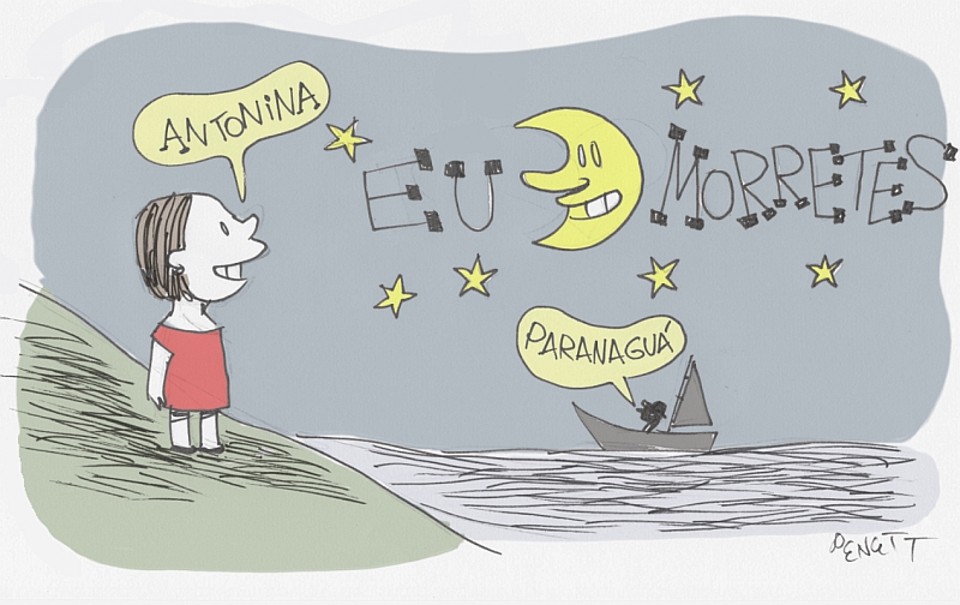 ANTONINA
EU MORRETES
PARANAGUÁ